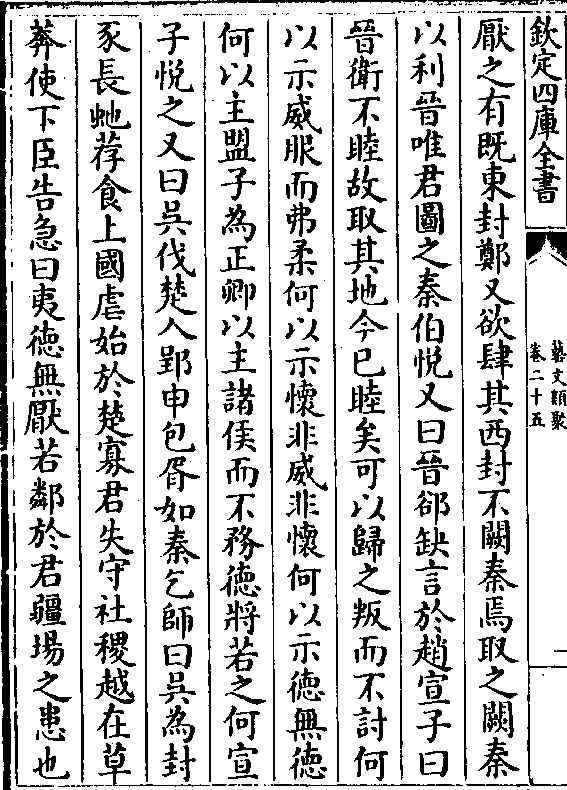 欽定四庫全書
藝文類聚
卷二十五
一
厭之有既東封鄭又欲肆其西封不闕秦焉取之闕秦
以利晉唯君圖之秦伯悅又曰晉郤缺言於趙宣子曰
晉衛不睦故取其地今已睦矣可以歸之叛而不討何
以示威服而弗柔何以示懷非威非懷何以示德無德
何以主盟子為正卿以主諸侯而不務德將若之何宣
子悅之又曰吳伐楚入郢申包胥如秦乞師曰吳為封
豕長虵荐食上國虐始於楚寡君失守社稷越在草
莽使下臣告急曰夷德無厭若鄰於君疆埸之患也